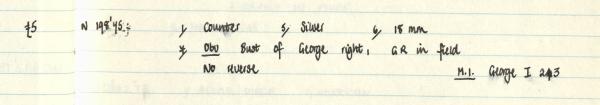 £5 N 198'45.; 1, Counter 5, Silver 6, 18 mm
7, Obv Bust of George right, GR in field
No reverse M.I. George I 243